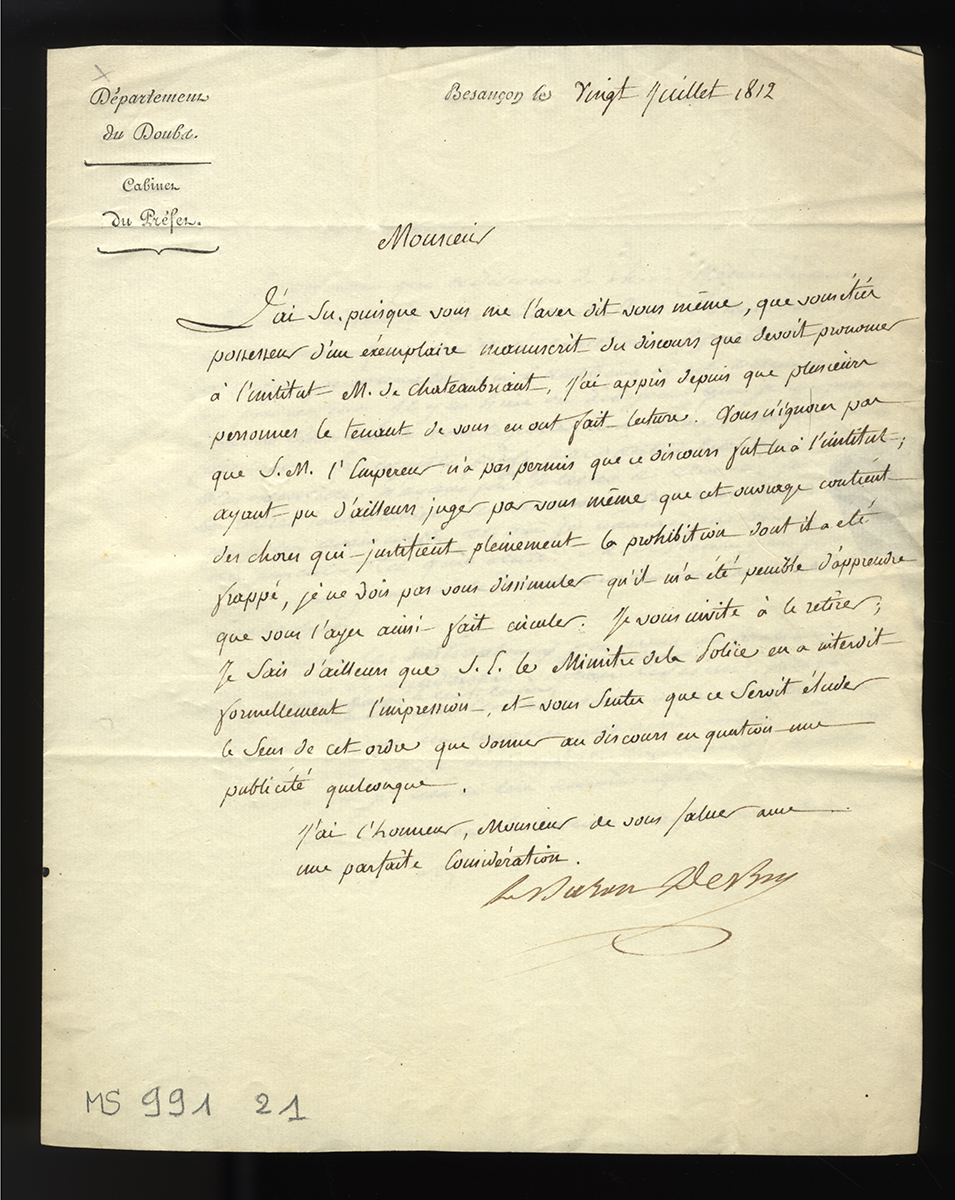 Département
du Doubs.
Cabinet
du Préfet.
Besançon le Vingt Juillet 1812
Monsieur
J'ai su, puisque vous me l'avez dit vous même, que vous étiez
possesseur d'un exémplaire manuscrit du discours que devoit prononcer
à l'institut M. de Chateaubriant, J'ai appris depuis que plusieurs
personnes le tenant de vous en ont fait lecture. Vous n'ignorez pas
que S. M. l'Empereur n'a pas permis que ce discours fut lu à l'institut;
ayant pu d'ailleurs juger par vous même que cet ouvrage contient
des choses qui justifient pleinement la prohibition dont il a eté
frappé, je ne dois pas vous dissimuler qu'il m'a été penible d'apprendre
que vous l'ayez ainsi fait circuler. Je vous invite à le retirer;
Je sais d'ailleurs que S. E. le Ministre de la Police en a interdit
formellement l'impression, et vous sentez que ce seroit éluder
le sens de cet ordre que donner au discours en question une
publicité quelconque.
J'ai l'honneur, Monsieur de vous saluer avec
une parfaite Considération.
Le Baron DeBry
MS 991 21